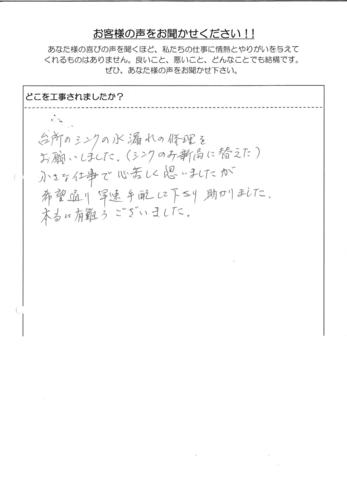 お客様の声をお聞かせください！！
あなた様の喜びの声を聞くほど、私たちの仕事に情熱とやりがいを与えて
くれるものはありません。良いこと、悪いこと、どんなことでも結構です。
ぜひ、あなた様の声をお聞かせ下さい。
どこを工事されましたか？
台所のシンクの水漏れの修理を
お願いしました。(シンクのみ新品に替えた)
小さな仕事で心苦しく思いましたが
希望通り早速手配して下さり助かりました。
本当に有難うございました。